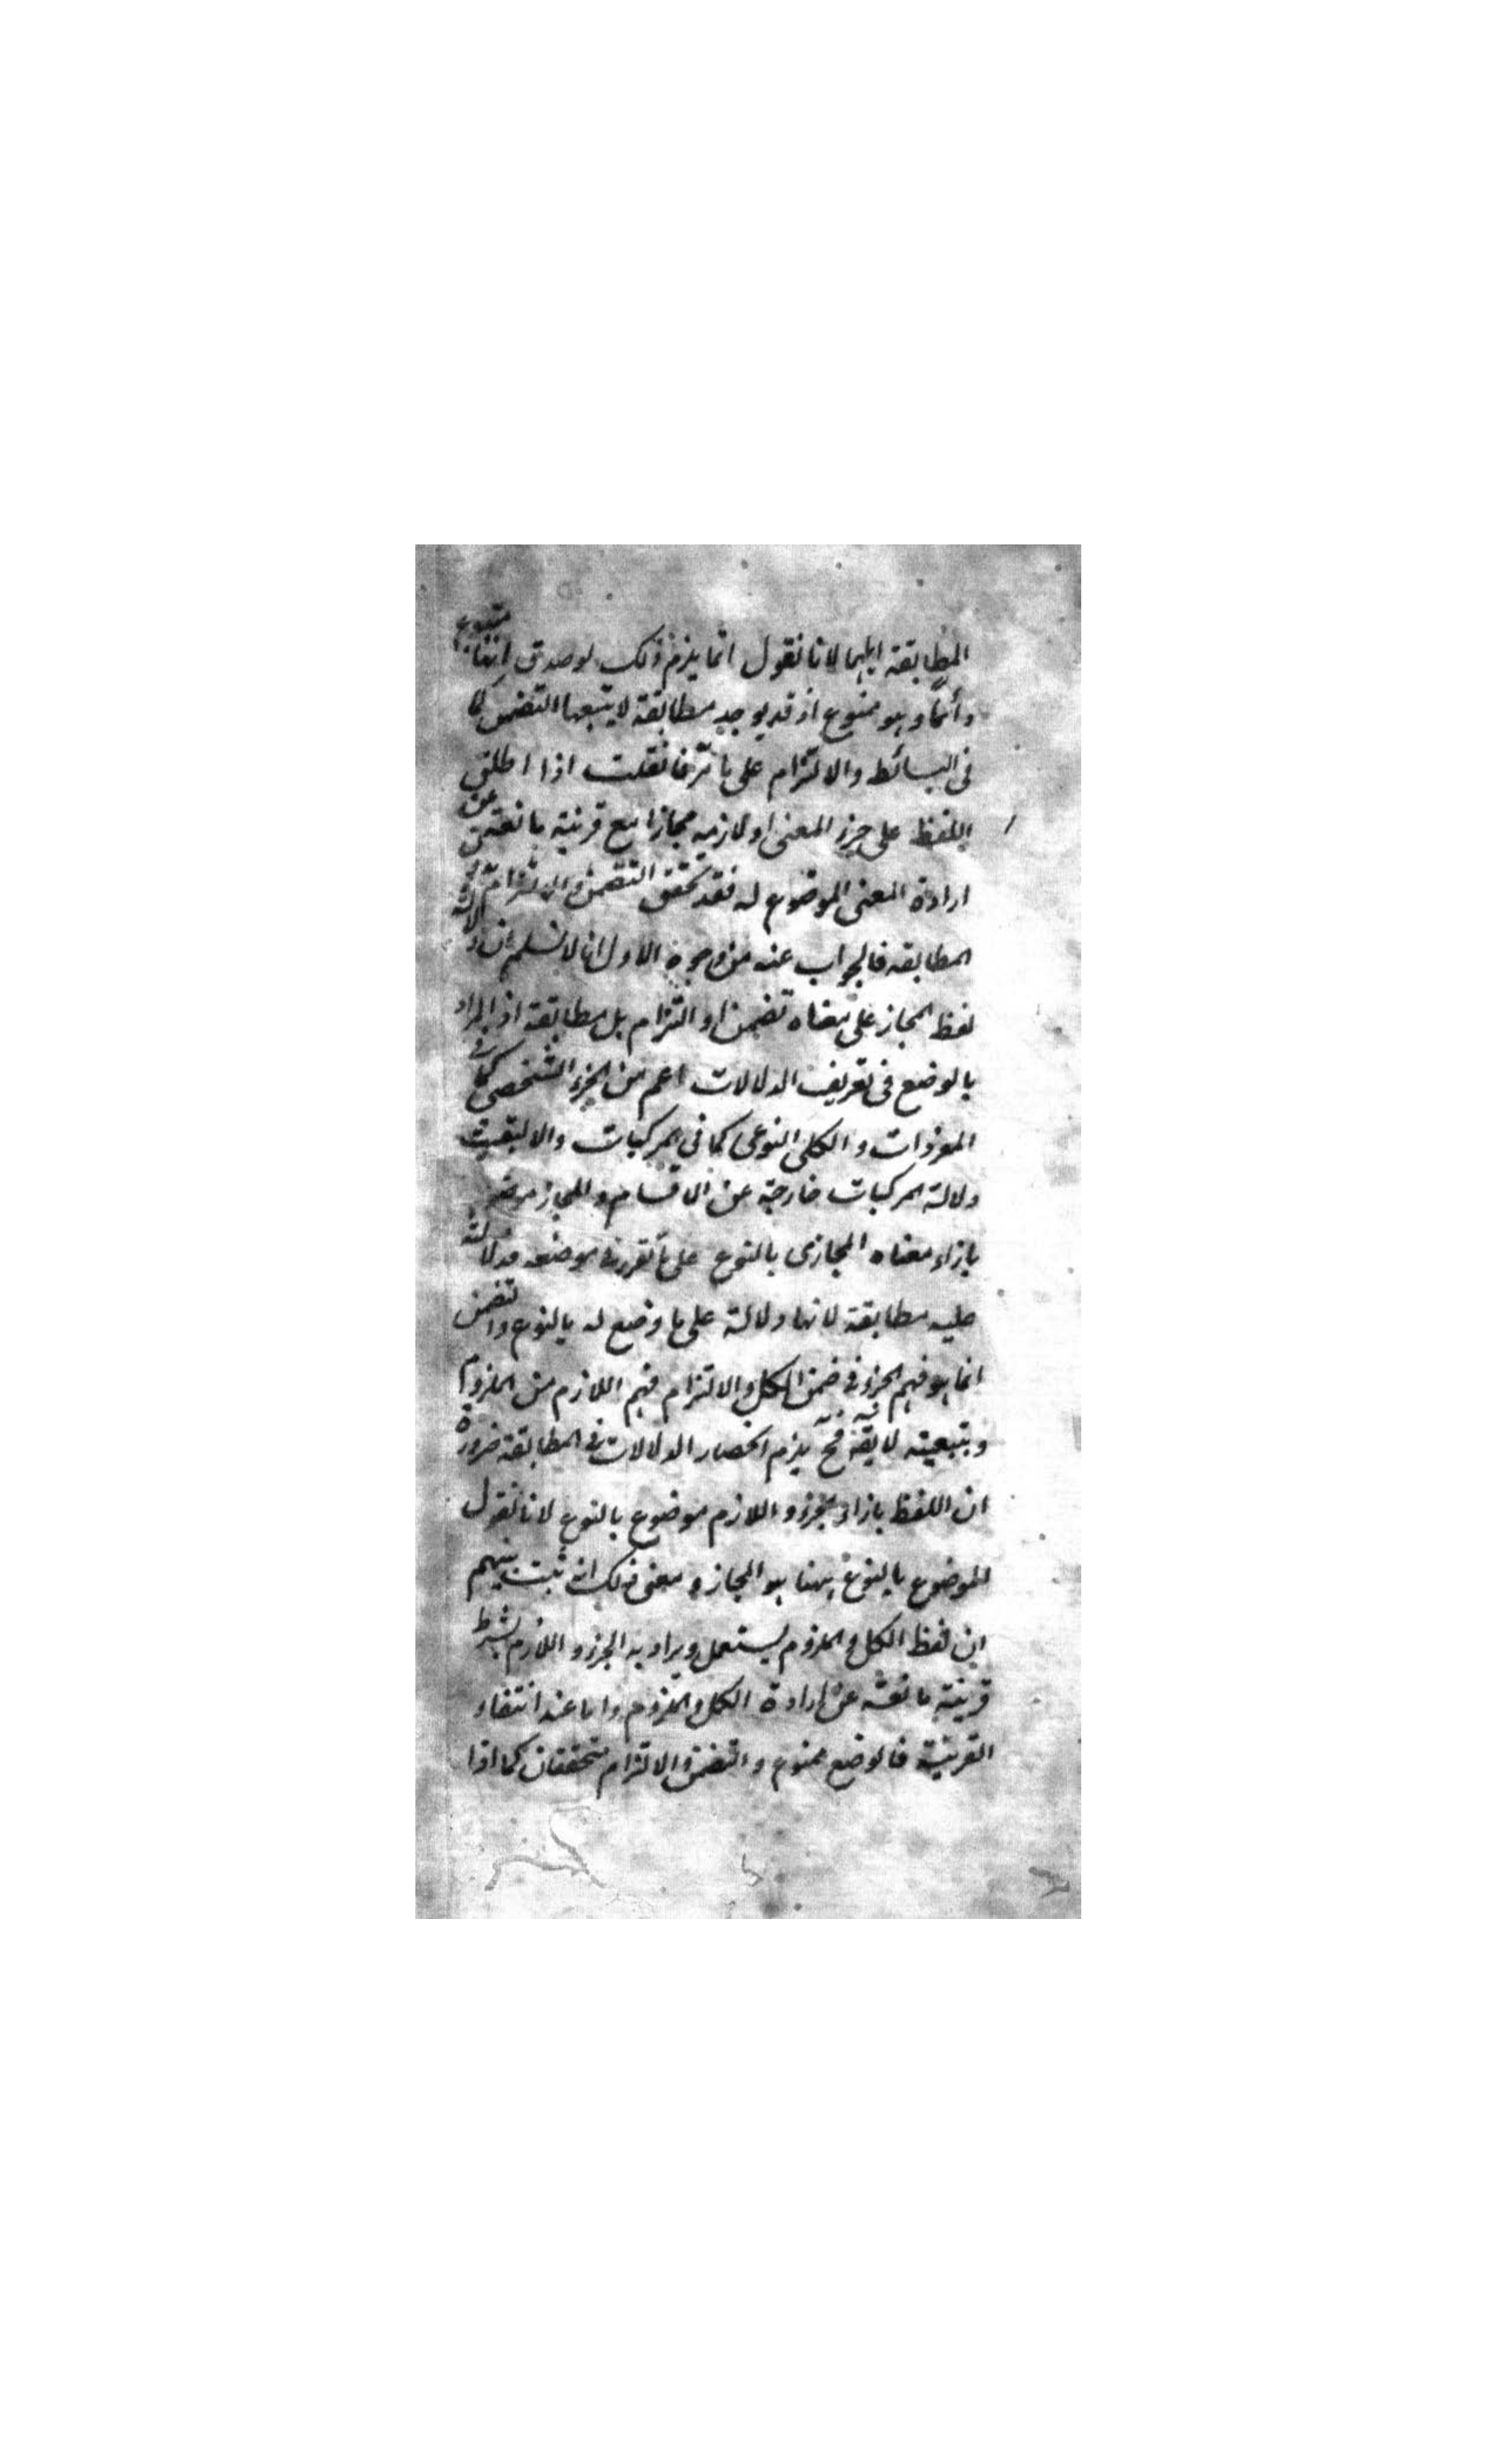 المطابقة اليهما لانا نقول انما يلزم ذلك لو صدق انها متبوع
دائما وهو ممنوع اذ قد يوجد مطابقة لا يتبعها التضمن كما
فى البسائط والالتزام على ما مر فان قلت اذا اطلق
اللفظ على جزء المعنى او لازمه مجازا مع قرينة مانعة عن
ارادة المعنى الموضوع له فقد تحقق التضمن والالتزام بدون
المطابقة فالجواب عنه من وجوه الاول انا لا نسلم ان دلالة
لفظ المجاز على معناه تضمن او التزام بل مطابقة اذ المراد
بالوضع فى تعريف الدلالات اعم من الجزء الشخصى كما فى
المفردات والكلى النوعى كما فى المركبات والا لبقيت
دلالة المركبات خارجة عن الاقسام والمجاز موضوع
بازاء معناه المجازى بالنوع على ما تقرر فى موضعه فدلالته
عليه مطابقة لانها دلالة على ما وضع له بالنوع والتضمن
انما هو فهم الجزء فى ضمن الكل والالتزام فهم اللازم من الملزوم
وبتبعيته لا يق فح يلزم انحصار الدلالات فى المطابقة ضرورة
ان اللفظ بازاء الجزء واللازم موضوع بالنوع لانا نقول
الموضوع بالنوع ههنا هو المجاز ومعنى ذلك انه ثبت بينهم
ان لفظ الكل والملزوم يستعمل ويراد به الجزء واللازم بشرط
قرينة مانعة عن ارادة الكل والملزوم واما عند انتفاء
القرينة فالوضع ممنوع والتضمن والالتزام متحققان كما اذا